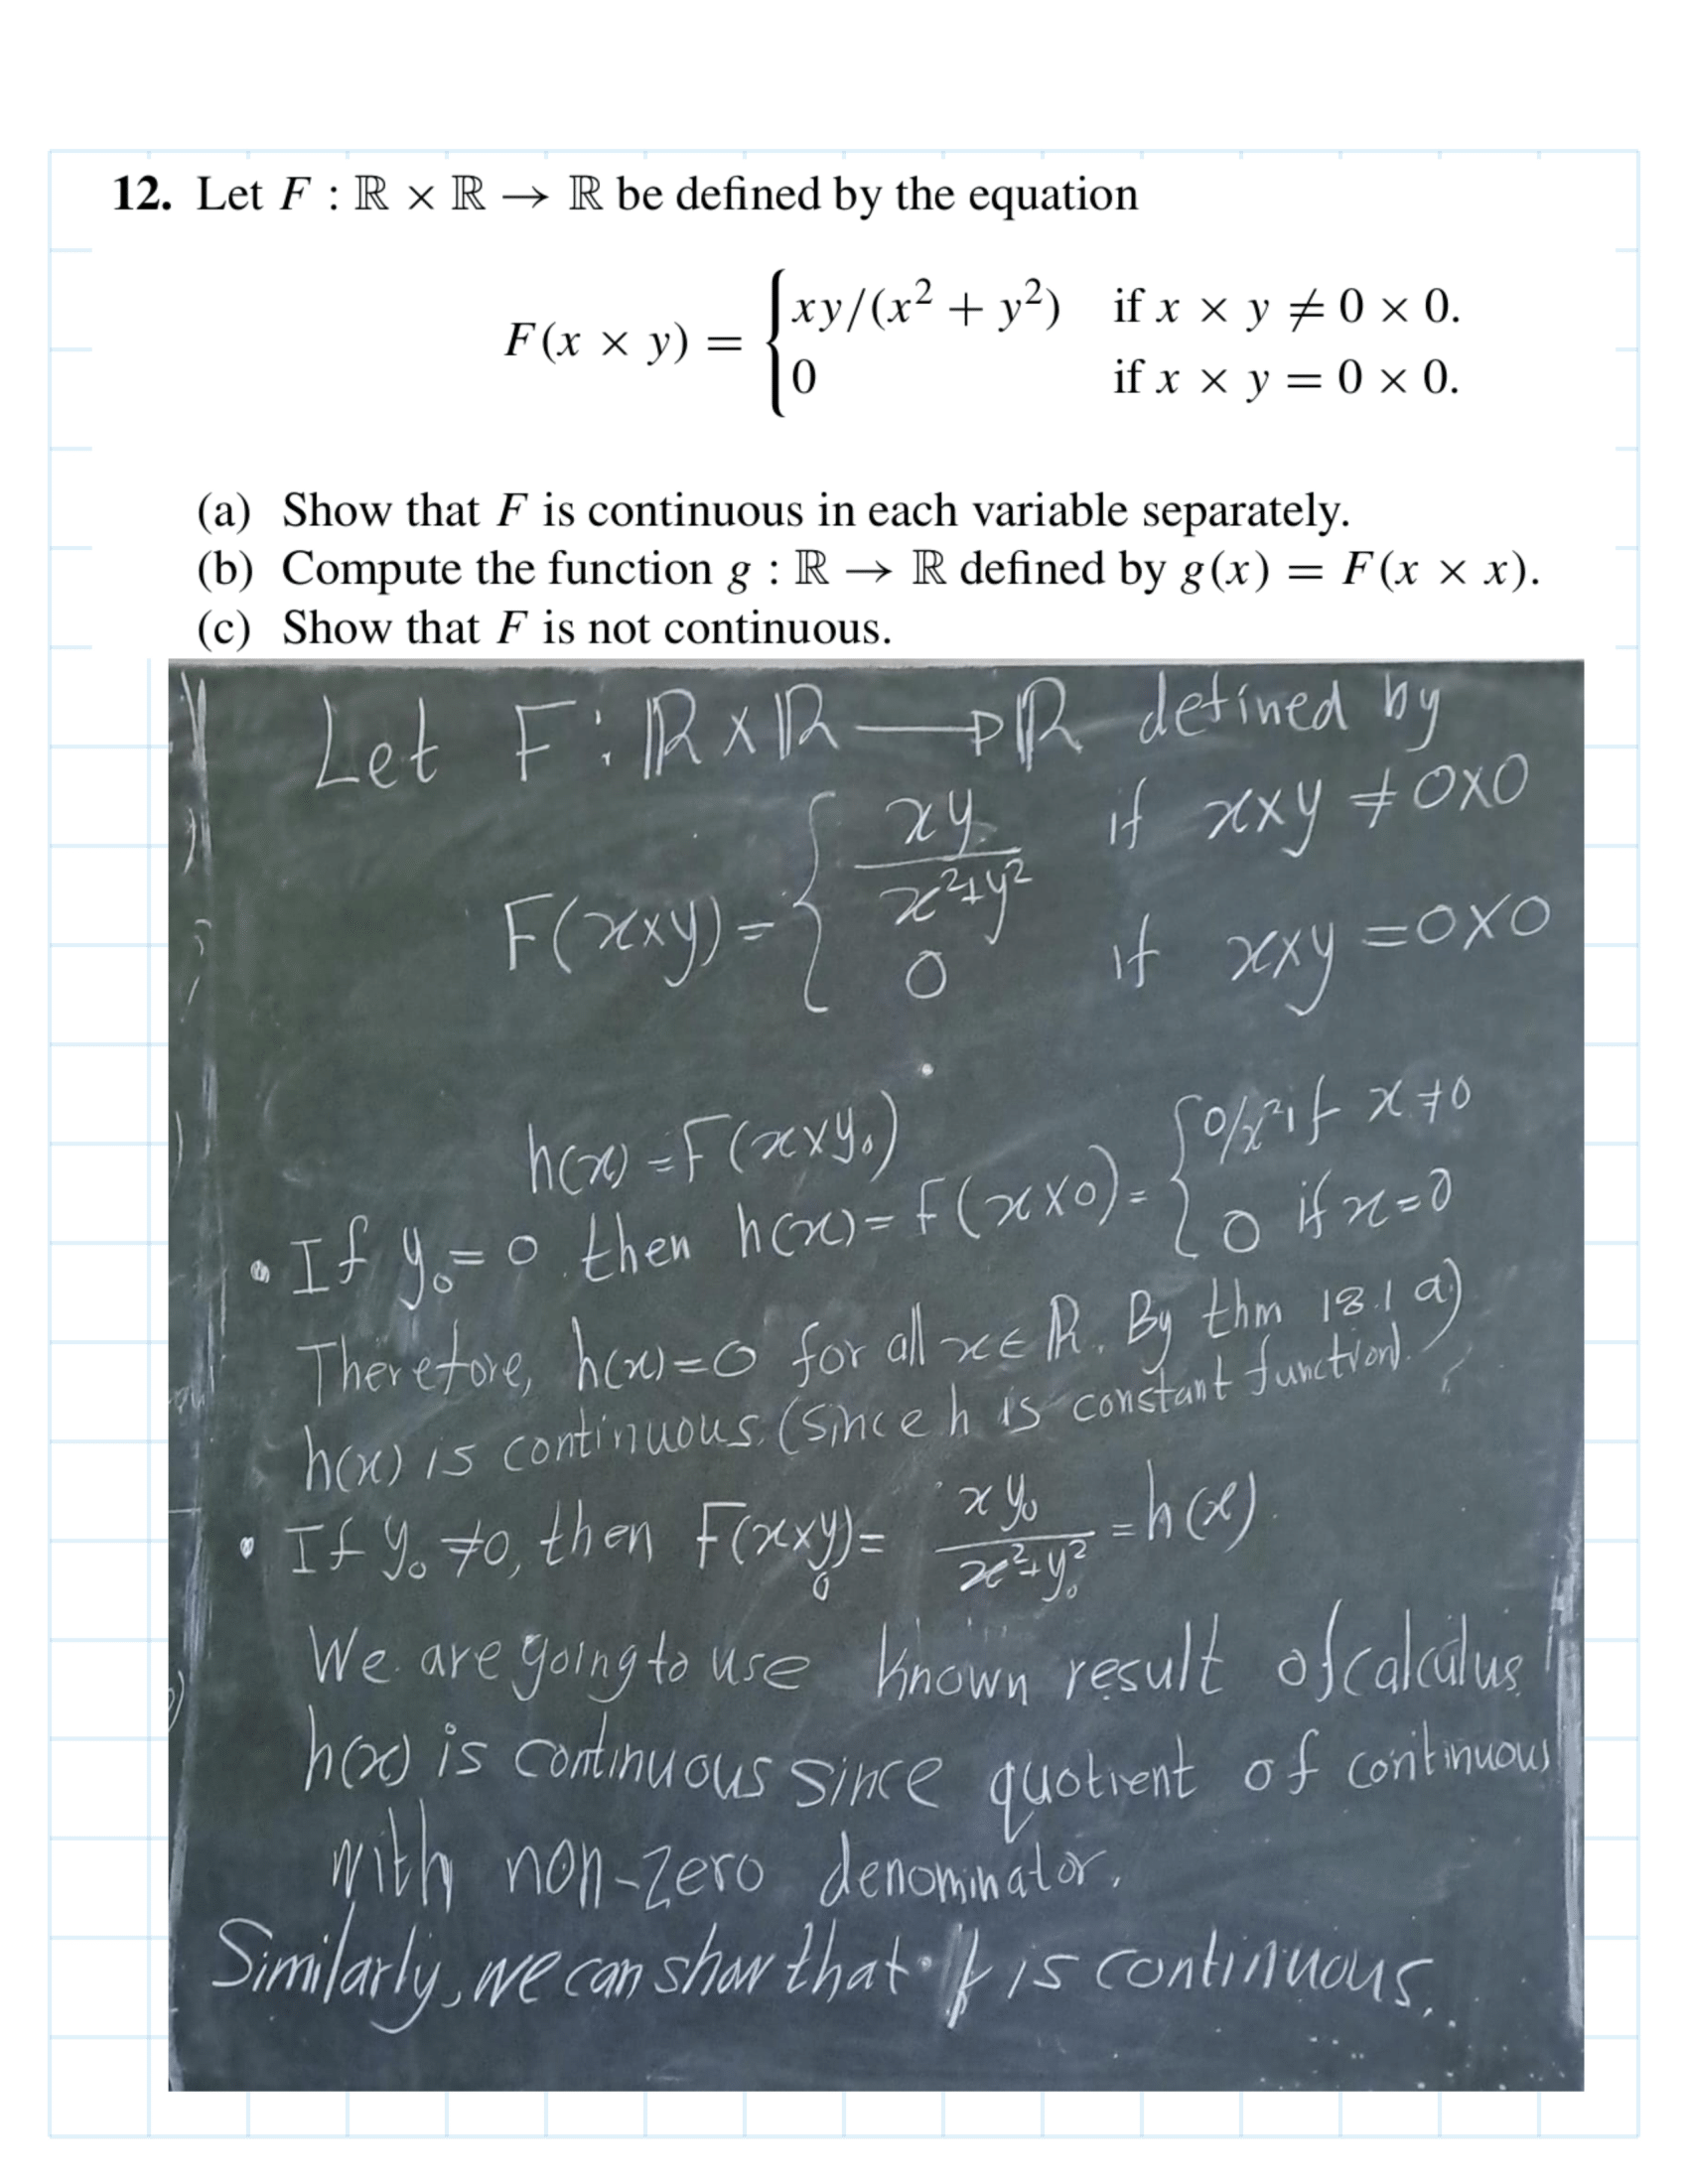 12. Let F : ℝ × ℝ → ℝ be defined by the equation
F(x × y) = { xy/(x² + y²) if x × y ≠ 0 × 0.
0 if x × y = 0 × 0.
(a) Show that F is continuous in each variable separately.
(b) Compute the function g : ℝ → ℝ defined by g(x) = F(x × x).
(c) Show that F is not continuous.
Let F : ℝ x ℝ → ℝ defined by
F(x×y) = { xy/(x²+y²) if x×y ≠ 0×0
0 if x×y = 0×0
h(x) = F(x×y₀)
• If y₀ = 0 then h(x) = F(x×0) = { 0/x² if x ≠ 0
0 if x = 0
Therefore, h(x) = 0 for all x ∈ ℝ. By thm 18.1 a)
h(x) is continuous. (Since h is constant function).
• If y₀ ≠ 0, then F(x×y₀) = xy₀/(x²+y₀²) = h(x).
We are going to use known result of calculus
h(x) is continuous since quotient of continuous
with non-zero denominator.
Similarly, we can show that is continuous.